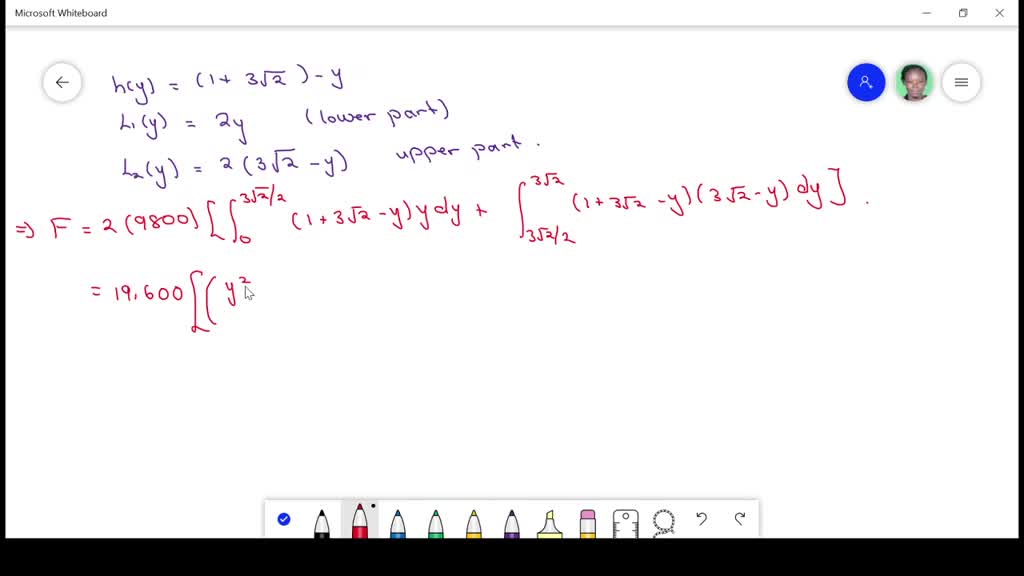 Microsoft Whiteboard
h(y) = (1 + 3√2) - y
L₁(y) = 2y (lower part)
L₂(y) = 2(3√2 - y) upper part.
⇒ F = 2(9800) [∫₀^{3√2/2} (1+3√2-y) y dy + ∫_{3√2/2}^{3√2} (1+3√2-y)(3√2-y) dy].
= 19,600 [( y²